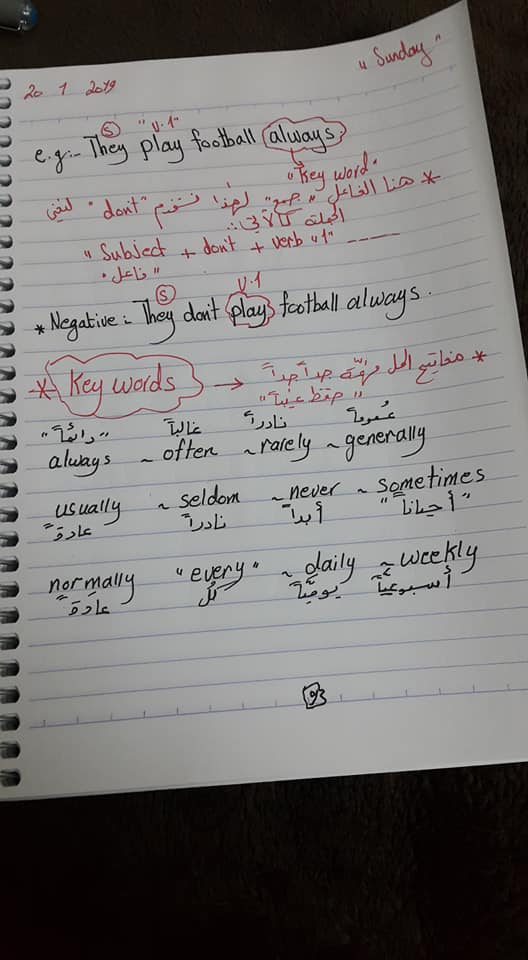 "Sunday"
20 1 2019
(S) "V.1"
e.g:- They play football always
"Key word"
* هنا الفاعل "جمع" لهذا نستخدم "don't" لنفي
الجملة كالآتي:
"Subject + don't + verb "1" ——
"فاعل"
(S) V.1
* Negative: They don't play football always.
* Key words → * مفاتيح الحل مهمّة جداً جداً
"حفظ غيباً"
"دائماً" غالباً نادراً عُموماً
always ~ often ~ rarely ~ generally
usually ~ seldom ~ never ~ sometimes
عادةً نادراً أبداً "أحياناً"
normally "every" ~ daily ~ weekly
عادةً كُل يوميّاً أسبوعيّاً